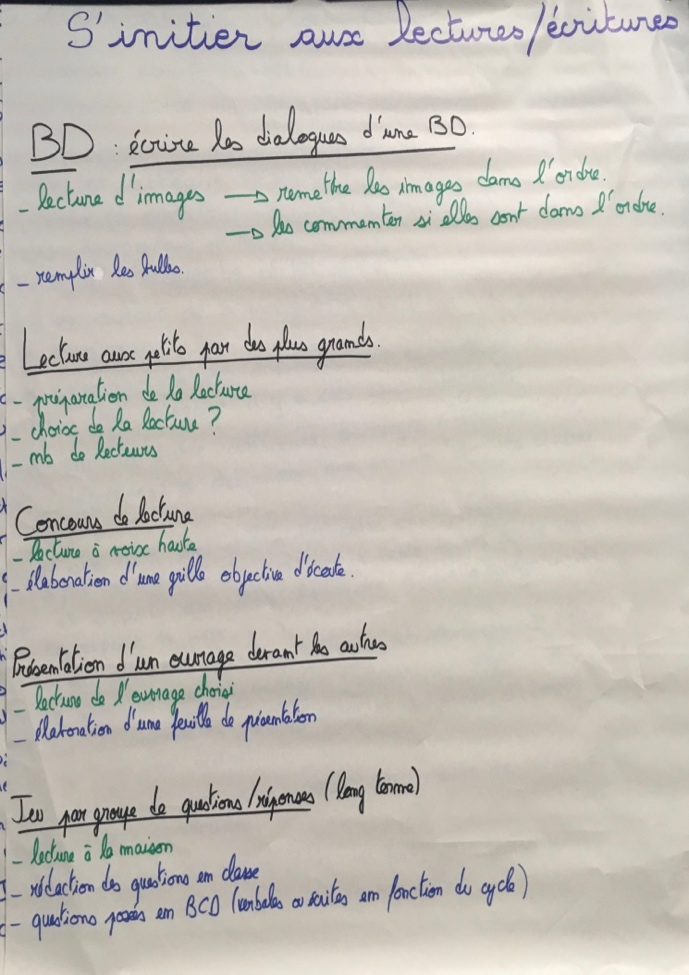 S'initier aux lectures/écritures
BD : écrire les dialogues d'une BD.
- lecture d'images → remettre les images dans l'ordre.
→ les commenter si elles sont dans l'ordre.
- remplir les bulles.
Lecture aux petits par des plus grands.
- préparation de la lecture
- choix de la lecture ?
- nb de lecteurs
Concours de lecture
- lecture à voix haute
- élaboration d'une grille objective d'écoute.
Présentation d'un ouvrage devant les autres
- lecture de l'ouvrage choisi
- élaboration d'une feuille de présentation
Jeu par groupe de questions/réponses (long terme)
- lecture à la maison
- rédaction des questions en classe
- questions posées en BCD (verbales ou écrites en fonction du cycle)